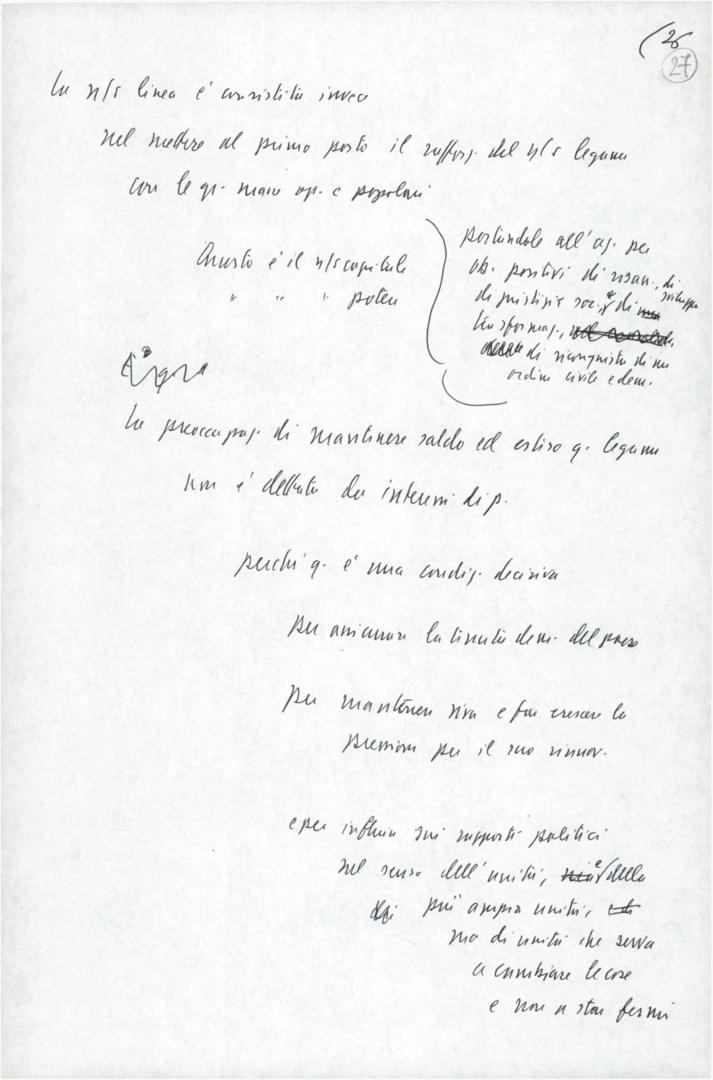 26
27
La n/s linea è consistita invece
nel mettere al primo posto il rafforz. del n/s legame
con le gr. masse op. e popolari
Questo è il n/s capitale
" " " potere
portandole all'az. per
ob. positivi di risan., di sviluppo
di giustizia soc. e di
trasformaz.,
di riconquista di un
ordine civile e dem.
La preoccupaz. di mantenere saldo ed esteso q. legame
non è dettata da interessi di p.
perché q. è una condiz. decisiva
per assicurare la tenuta dem. del paese
per mantenere viva e far crescere la
pressione per il suo rinnov.
e per influire sui rapporti politici
nel senso dell'unità, e della
più ampia unità,
ma di unità che serva
a cambiare le cose
e non a star fermi